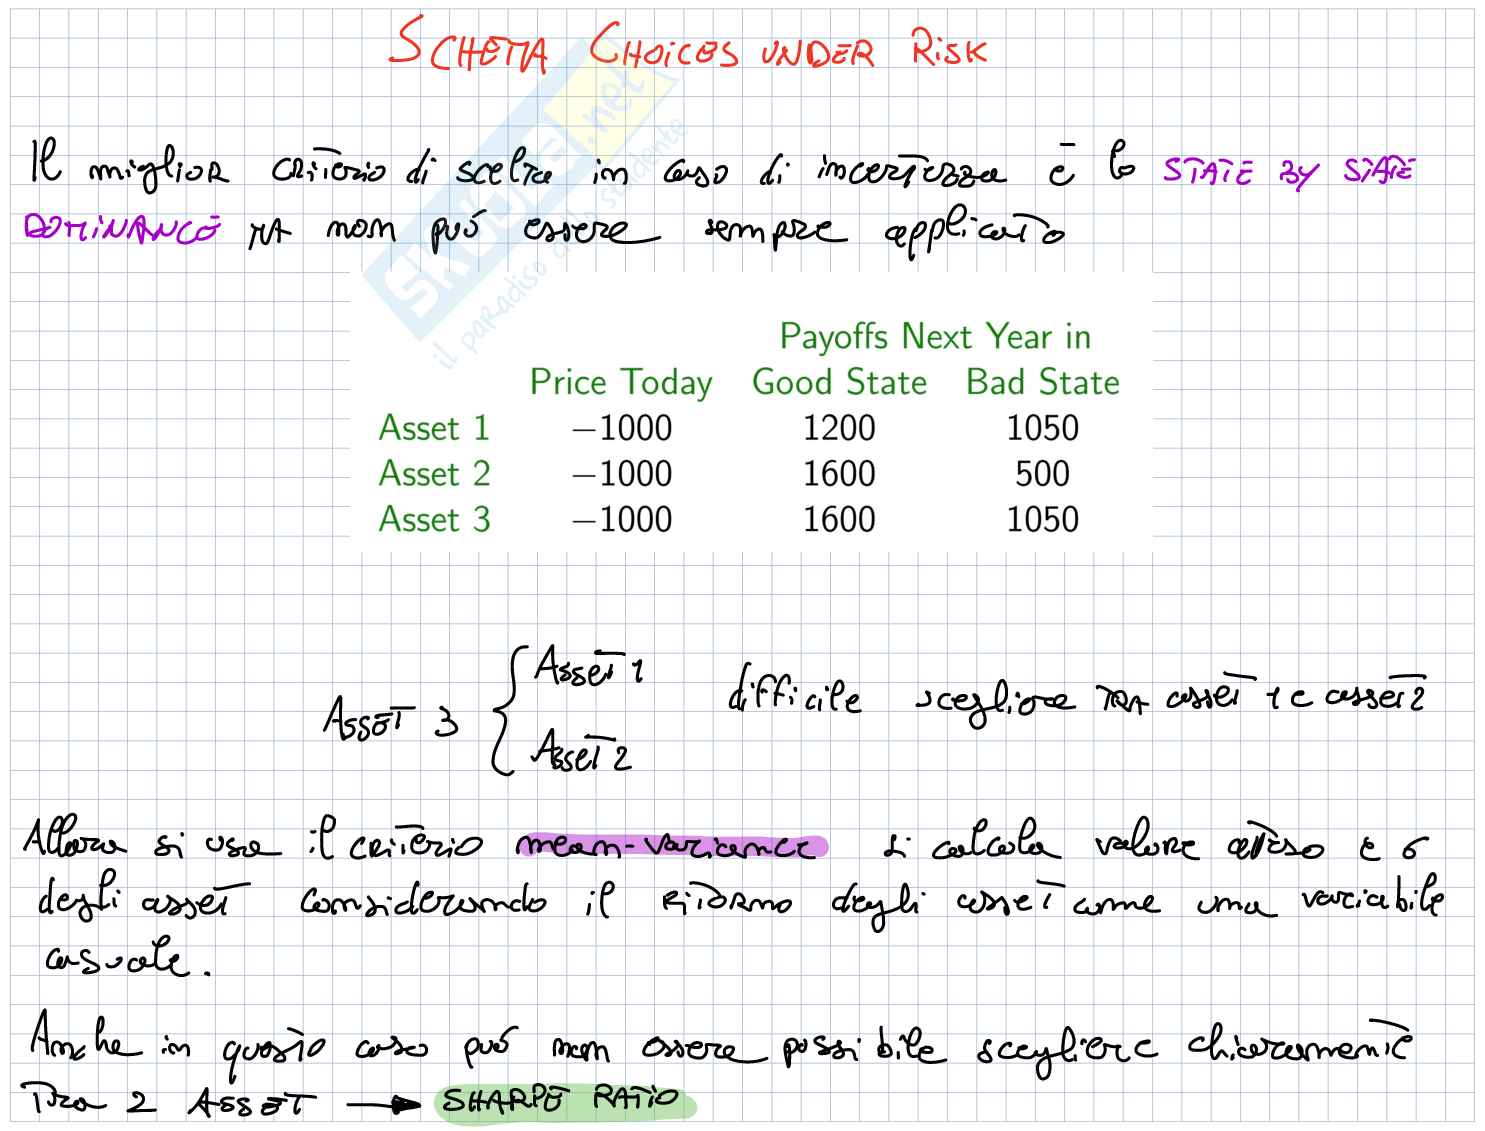 SCHEMA CHOICES UNDER RISK
Il miglior criterio di scelta in caso di incertezza è lo STATE BY STATE
DOMINANCE MA non può essere sempre applicato
Skuola.net
il paradiso dello studente
Payoffs Next Year in
Price Today Good State Bad State
Asset 1 −1000 1200 1050
Asset 2 −1000 1600 500
Asset 3 −1000 1600 1050
ASSET 3 { Asset 1 difficile scegliere TRA asset 1 e asset 2
Asset 2
Allora si usa il criterio mean-variance si calcola valore atteso e σ
degli asset considerando il ritorno degli asset come una variabile
casuale.
Anche in questo caso può non essere possibile scegliere chiaramente
Tra 2 ASSET → SHARPE RATIO